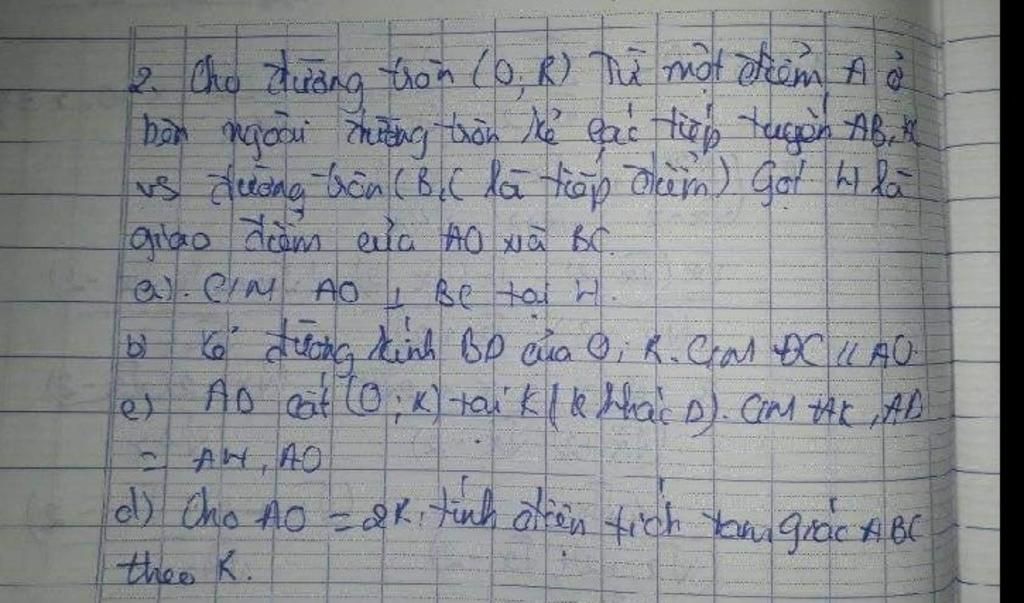 2. Cho đường tròn (O, R) Từ một điểm A ở
bên ngoài đường tròn kẻ các tiếp tuyến AB, AC
vs đường tròn (B, C là tiếp điểm) Gọi H là
giao điểm của AO và BC.
a). C/M AO ⊥ BC tại H.
b) Kẻ đường kính BD của O; R. C/M DC // AO.
c) AD cắt (O; R) tại K (K khác D). C/M AK, AD
= AH, AO
d) Cho AO = 2R. tính diện tích tam giác ABC
theo R.